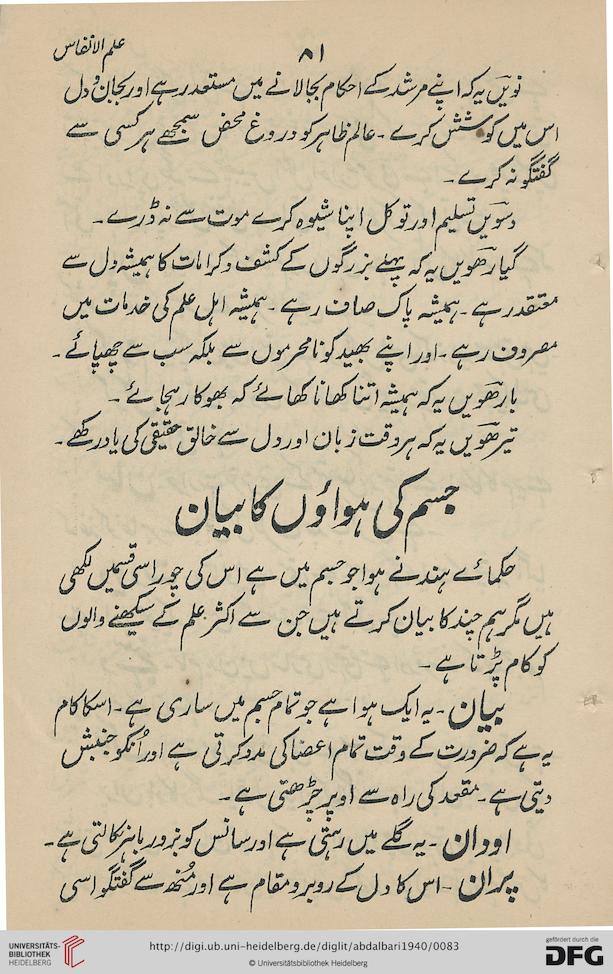 ۸۱
علم الانفاس
نویں یہ کہ اپنے مرشد کے احکام بجا لانے میں مستعد رہے اور بجان و دل
اس میں کوشش کرے ۔ عالم ظاہر کو دروغ محض سمجھے ہر کسی سے
گفتگو نہ کرے ۔
دسویں تسلیم اور توکل اپنا شیوہ کرے موت سے نہ ڈرے ۔
گیارھویں یہ کہ پہلے بزرگوں کے کشف و کرامات کا ہمیشہ دل سے
معتقد رہے ۔ ہمیشہ پاک صاف رہے ۔ ہمیشہ اہل علم کی خدمات میں
مصروف رہے ۔ اور اپنے بھید کو نامحرموں سے بلکہ سب سے چھپائے ۔
بارھویں یہ کہ ہمیشہ اتنا کھانا کھائے کہ بھوکا رہجائے ۔
تیرھویں یہ کہ ہر وقت زبان اور دل سے خالق حقیقی کی یاد رکھے ۔
جسم کی ہواؤں کا بیان
حکمائے ہند نے ہوا جو جسم میں ہے اس کی چوراسی قسمیں لکھی
ہیں مگر ہم چند کا بیان کرتے ہیں جن سے اکثر علم کے سیکھنے والوں
کو کام پڑتا ہے ۔
بیان ۔ یہ ایک ہوا ہے جو تمام جسم میں ساری ہے ۔ اسکا کام
یہ ہے کہ ضرورت کے وقت تمام اعضا کی مدد کرتی ہے اور اُنکو جنبش
دیتی ہے ۔ مقعد کی راہ سے اوپر چڑھتی ہے ۔
اودان ۔ یہ گلے میں رہتی ہے اور سانس کو بزور باہر نکالتی ہے ۔
پران ۔ اس کا دل کے روبرو مقام ہے اور مُنھ سے گفتگو اسی
UNIVERSITÄTS-
BIBLIOTHEK
HEIDELBERG
http://digi.ub.uni-heidelberg.de/diglit/abdalbari1940/0083
© Universitätsbibliothek Heidelberg
gefördert durch die
DFG